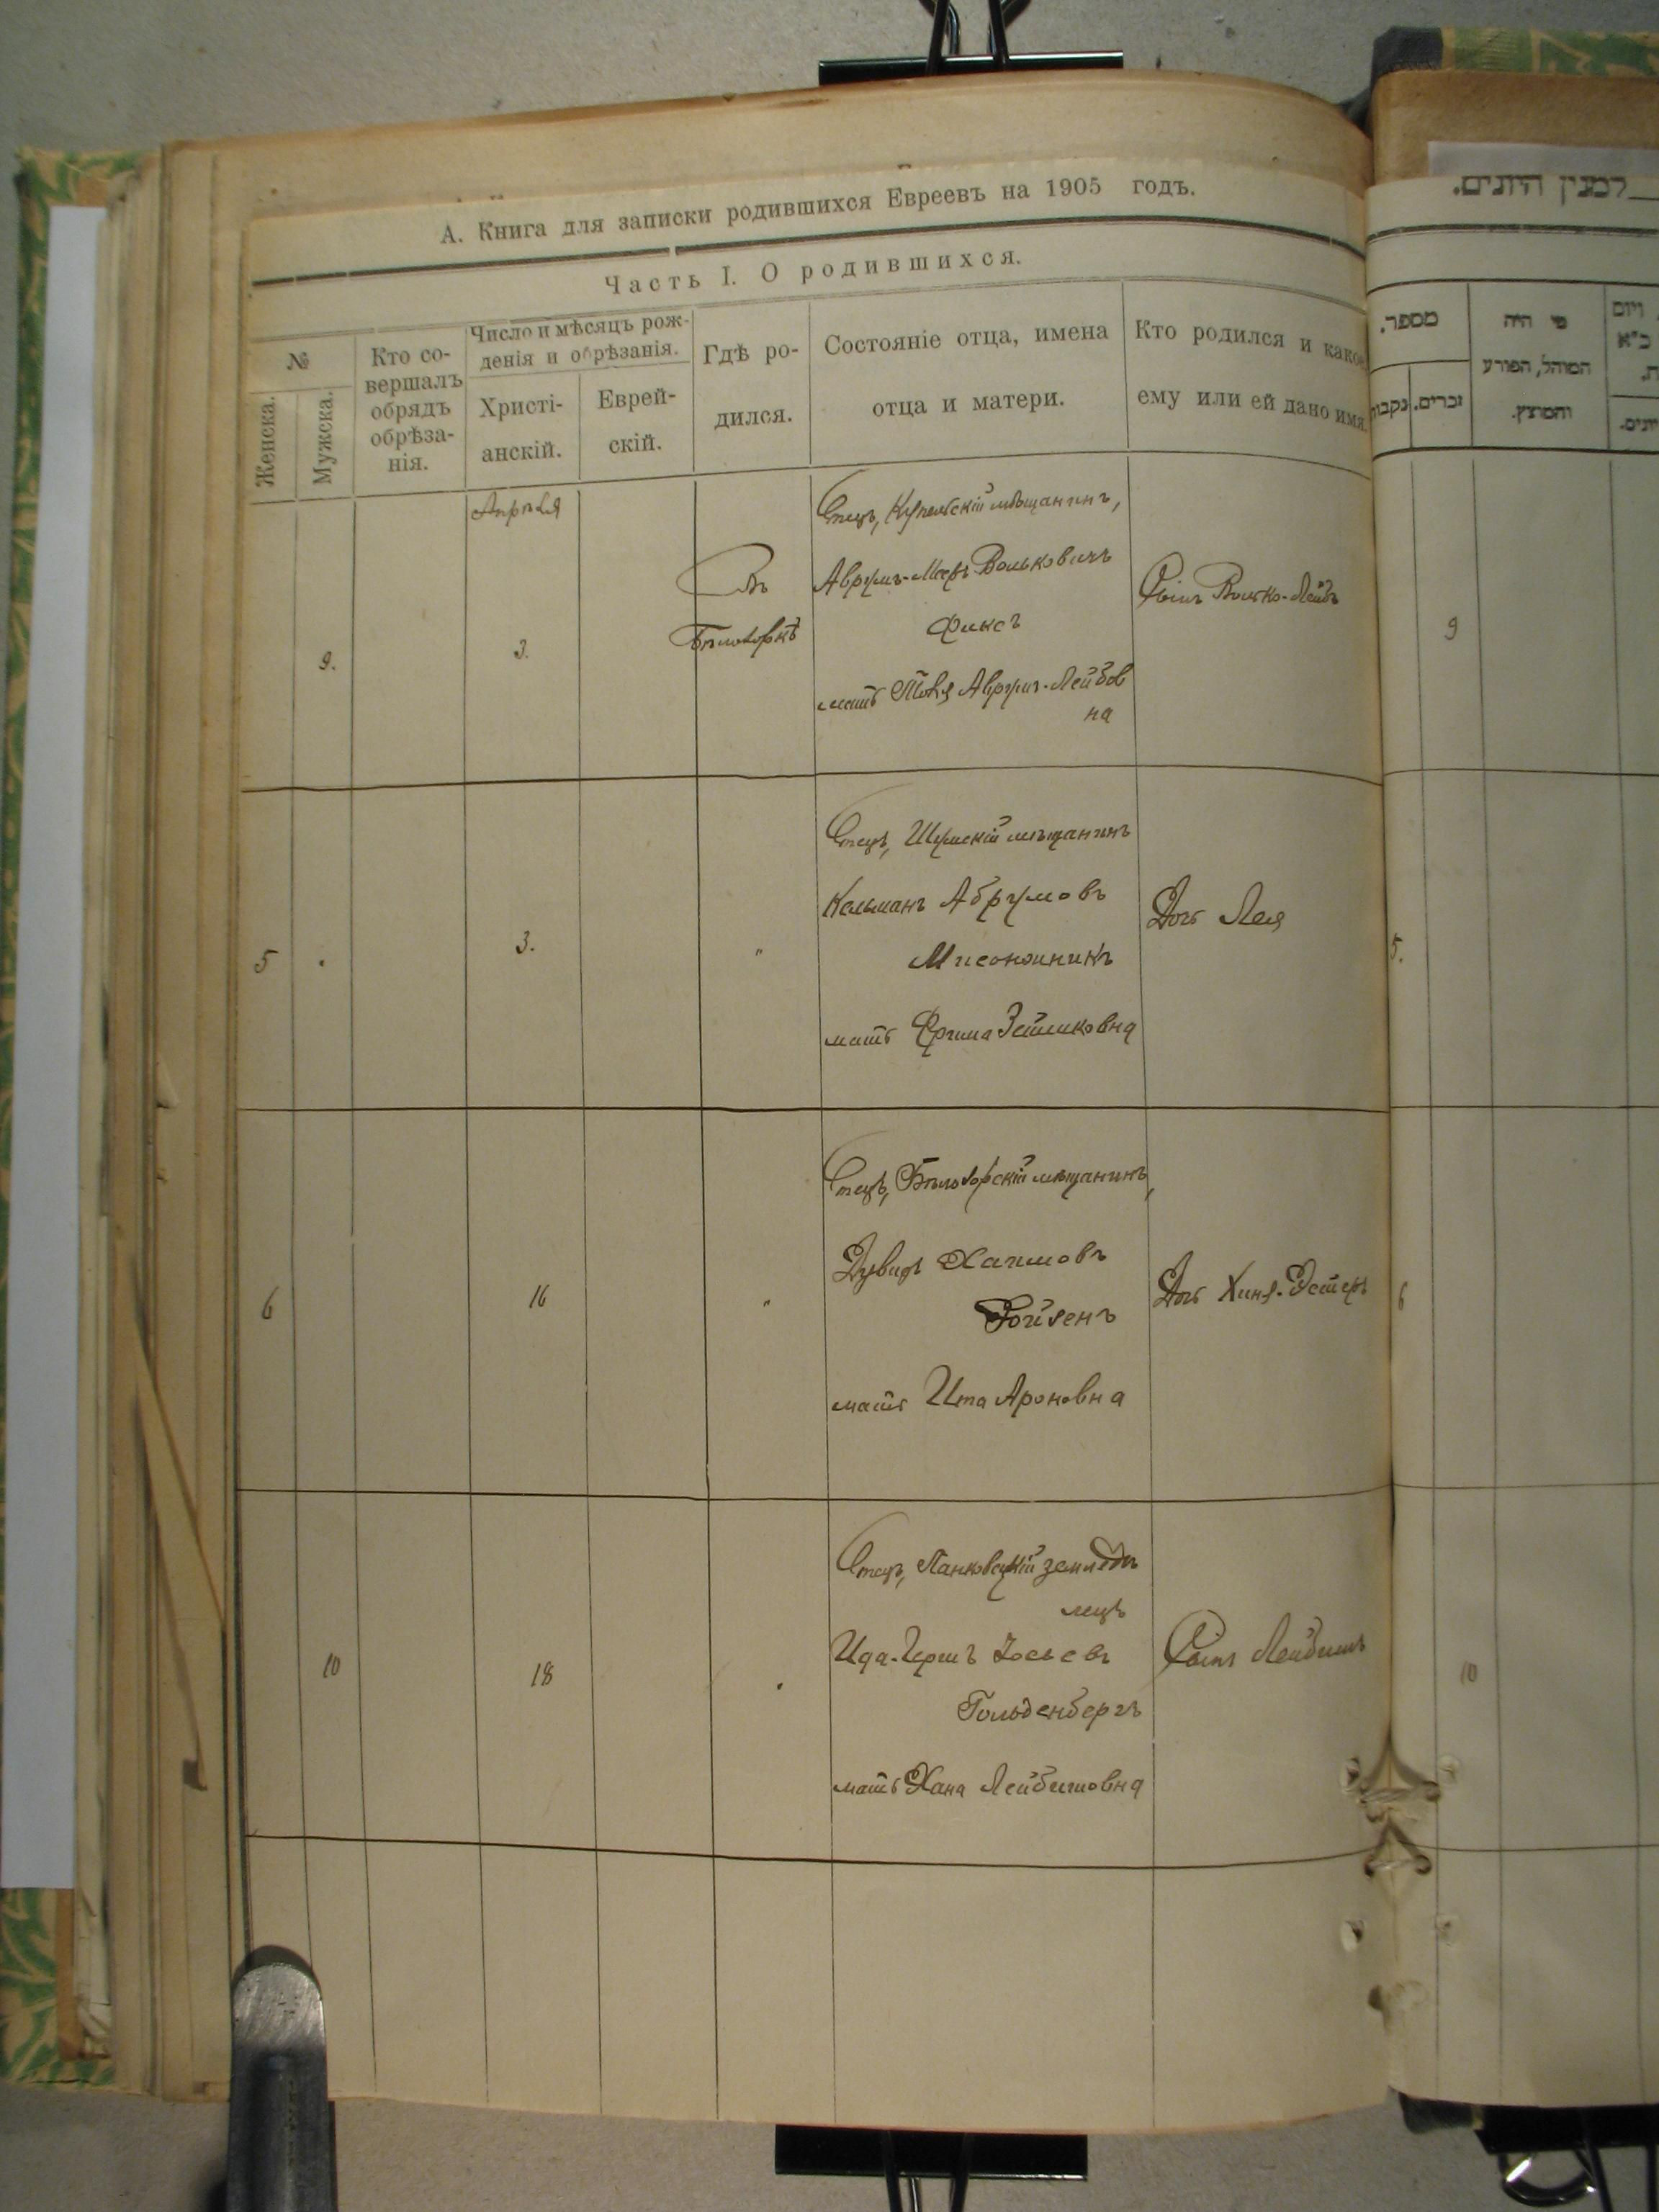 А. Книга для записки родившихся Евреевъ на 1905 годъ.
Часть I. О родившихся.
№
Женска.
Мужска.
Кто со-
вершалъ
обрядъ
обрѣза-
нія.
Число и мѣсяцъ рож-
денія и обрѣзанія.
Христі-
анскій.
Еврей-
скій.
Гдѣ ро-
дился.
Состояніе отца, имена
отца и матери.
Кто родился и какое
ему или ей дано имя.
Апрѣля
9.
3.
Въ
Бѣлозоркѣ
Отецъ, Купельскій мѣщанинъ,
Аврумъ-Мееръ Вольковичъ
Фиксъ
мать Аврумъ-Лейбов
на
Сынъ Волько-Лейбъ
5
3.
"
Отецъ, Шумскій мѣщанинъ
Кельманъ Абрумовъ
мать Фрима
Дочь Лея
6
16
"
Отецъ, Бѣлозорскій мѣщанинъ,
Дувидъ Хаимовъ
Ройзенъ
мать Ита Ароновна
Дочь Хиня-Эстеръ
10
18
"
Отецъ, земледѣ
лецъ
Гольденбергъ
мать Хана Лейбишовна
Сынъ Лейбишъ
למנין היונים.
מספר.
נקבות
זכרים.
מי היה
המוהל, הפורע
והמוצץ.
ויום
כ"א
יונים.
9
5.
6
10